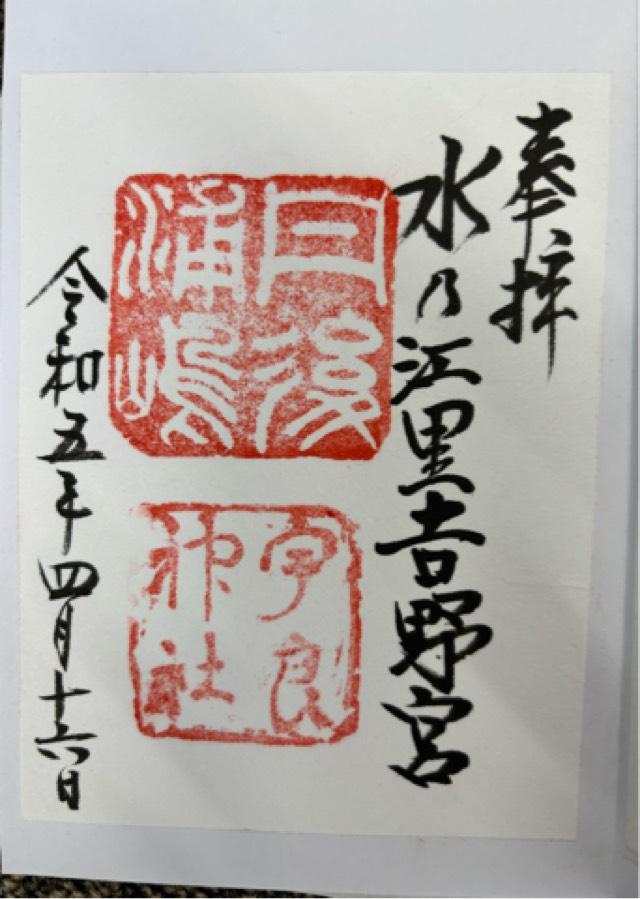 奉拝
水乃江里吉野宮
丹後
浦嶋
宇良
神社
令和五年四月十六日